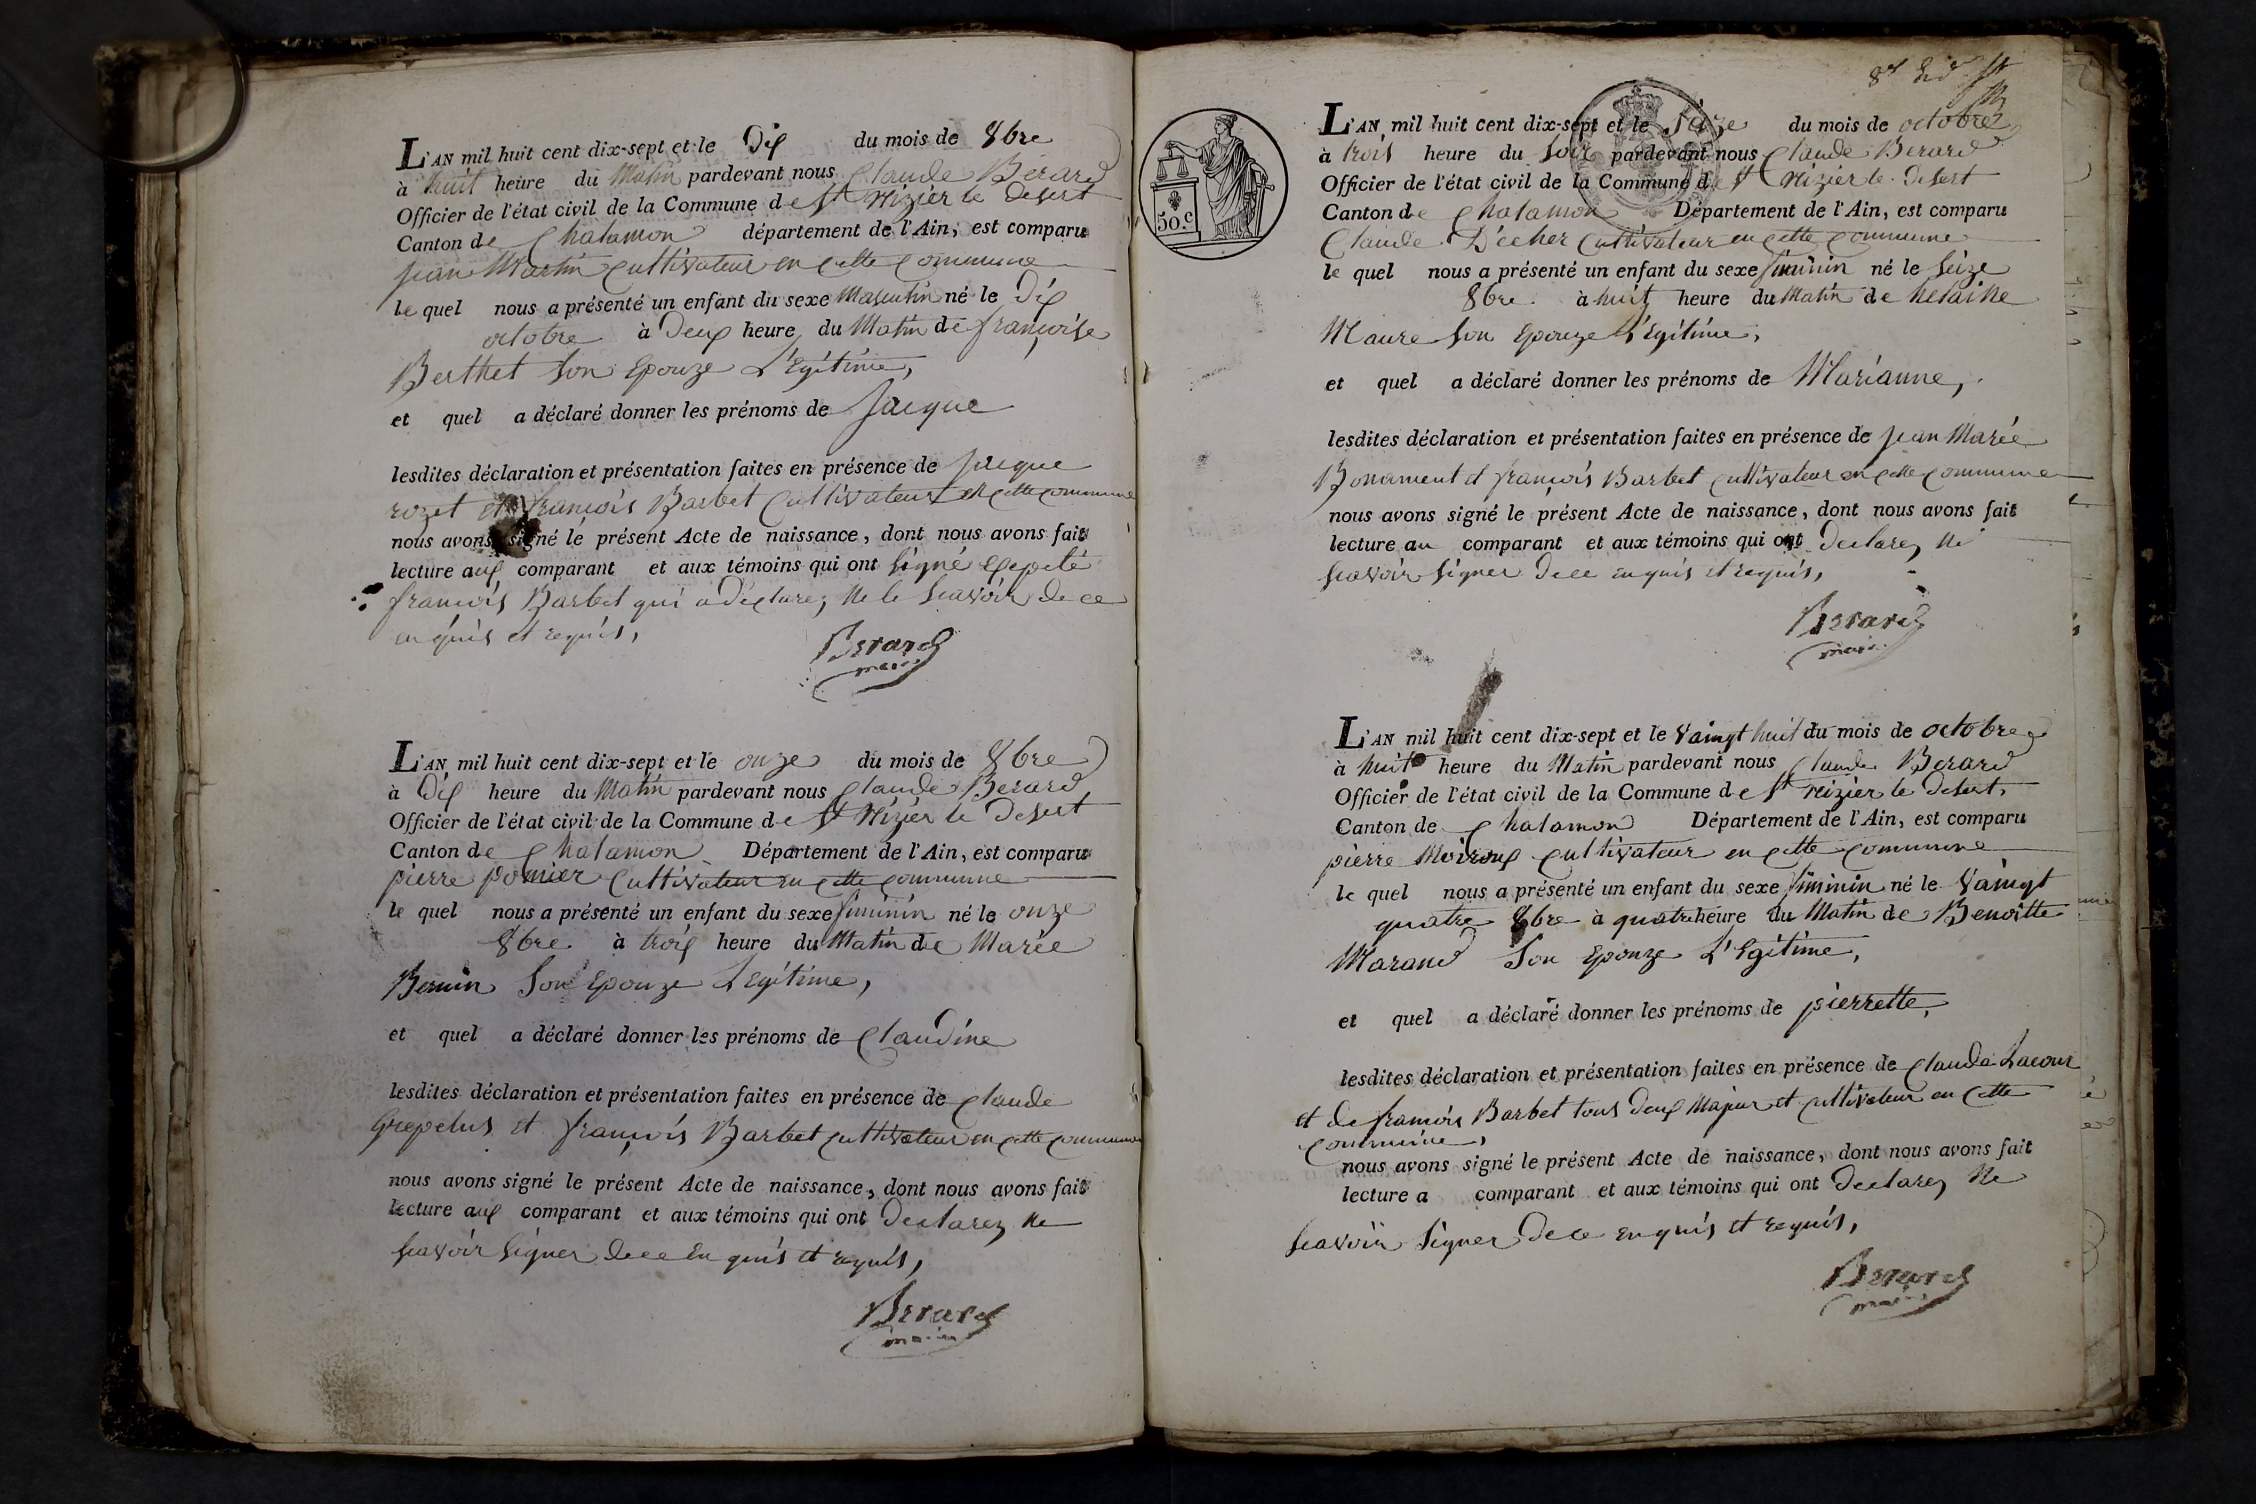 L'AN mil huit cent dix-sept et le Dix du mois de 8bre
à huit heure du Matin pardevant nous Claude Bérard
Officier de l'état civil de la Commune de St Nizier le Desert
Canton de Chalamon département de l'Ain, est comparu
jean Martin Cultivateur en Cette Commune
le quel nous a présenté un enfant du sexe Masculin né le Dix
octobre à Deux heure du Matin de françoise
Berthet Son Epouze L'Egitime,
et quel a déclaré donner les prénoms de Jacque
lesdites déclaration et présentation faites en présence de Jacque
rozet et françois Barbet Cultivateur en Cette Commune
nous avons signé le présent Acte de naissance, dont nous avons fait
lecture aux comparant et aux témoins qui ont Signé Exepté
françois Barbet qui a Déclarez Ne le Scavoir de ce
en quis et requis,
Berard
maire
L'AN mil huit cent dix-sept et le onze du mois de 8bre
à Dix heure du Matin pardevant nous Claude Berard
Officier de l'état civil de la Commune de St Nizier le Desert
Canton de Chalamon Département de l'Ain, est comparu
pierre pomier Cultivateur en Cette Commune
le quel nous a présenté un enfant du sexe fiminin né le onze
8bre à trois heure du Matin de Marie
Bernin Son Epouze L'Egitime,
et quel a déclaré donner les prénoms de Claudine
lesdites déclaration et présentation faites en présence de Claude
Grepelus et françois Barbet Cultivateur en Cette Commune
nous avons signé le présent Acte de naissance, dont nous avons fait
lecture aux comparant et aux témoins qui ont Declarez Ne
Scavoir Signer de ce En quis et requis,
Berard
maire
50.c
L'AN mil huit cent dix-sept et le Seize du mois de octobre
à trois heure du Soir pardevant nous Claude Berard
Officier de l'état civil de la Commune de St Nizier le Desert
Canton de Chalamon Département de l'Ain, est comparu
Claude Décher Cultivateur en Cette Commune
le quel nous a présenté un enfant du sexe fiminin né le Seize
8bre à huit heure du Matin de helaine
Maure Son Epouze L'Egitime,
et quel a déclaré donner les prénoms de Marianne,
lesdites déclaration et présentation faites en présence de jean Marie
Bonament et françois Barbet Cultivateur en Cette Commune
nous avons signé le présent Acte de naissance, dont nous avons fait
lecture au comparant et aux témoins qui ont Declarez Ne
Scavoir Signer de ce en quis et requis,
Berard
maire
L'AN mil huit cent dix-sept et le Vaingt huit du mois de octobre
à huit heure du Matin pardevant nous Claude Berard
Officier de l'état civil de la Commune de St Nizier le Desert,
Canton de Chalamon Département de l'Ain, est comparu
pierre Moiroux Cultivateur en Cette Commune
le quel nous a présenté un enfant du sexe fiminin né le Vaingt
quatre 8bre à quatre heure du Matin de Benoitte
Marand Son Epouze L'Egitime,
et quel a déclaré donner les prénoms de pierrette,
lesdites déclaration et présentation faites en présence de Claude Lacour
et de françois Barbet tous deux Majeur et Cultivateur en Cette
Commune,
nous avons signé le présent Acte de naissance, dont nous avons fait
lecture a comparant et aux témoins qui ont Declarez Ne
Scavoir Signer de ce en quis et requis,
Berard
maire